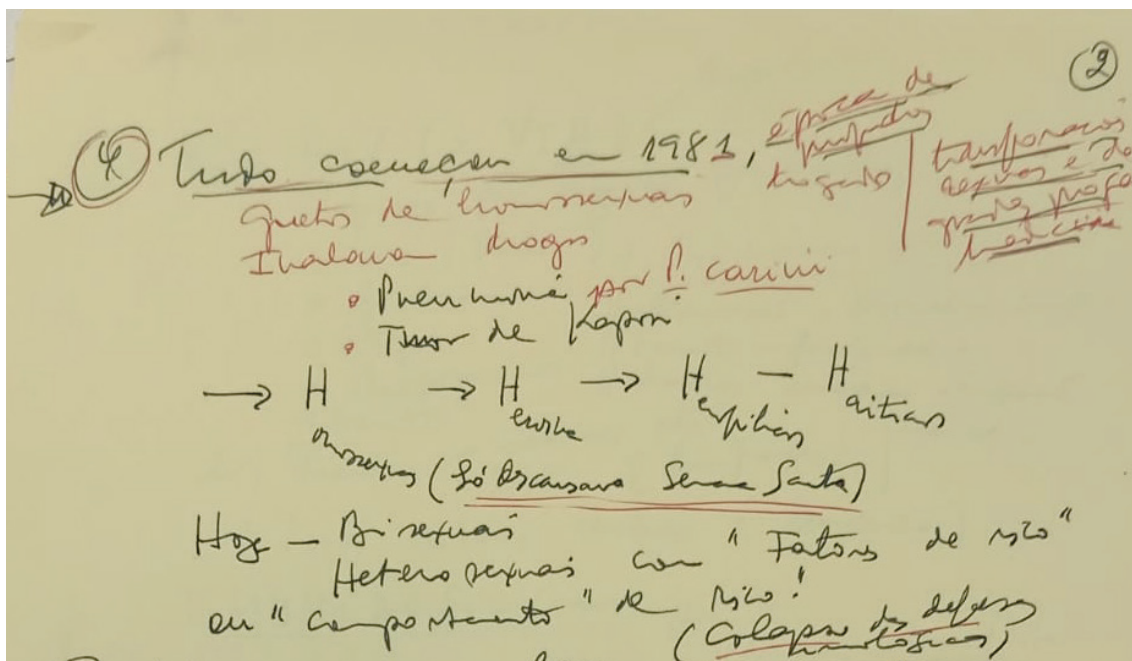 2
4 Tudo começou em 1981, época de
drogado
transformações
sexuais e do
guetos de homossexuais
Inalava drogas
• Pneumonia por P. carinii
• Tumor de Kaposi
→ H → H → H — H
omossexuais eroína emofílicos aitianos
(Só descansava Semana Santa)
Hoje — Bisexuais
Heterosexuais com "Fatores de risco"
ou "comportamento" de risco!
(Colapso das defesas
imunológicas)